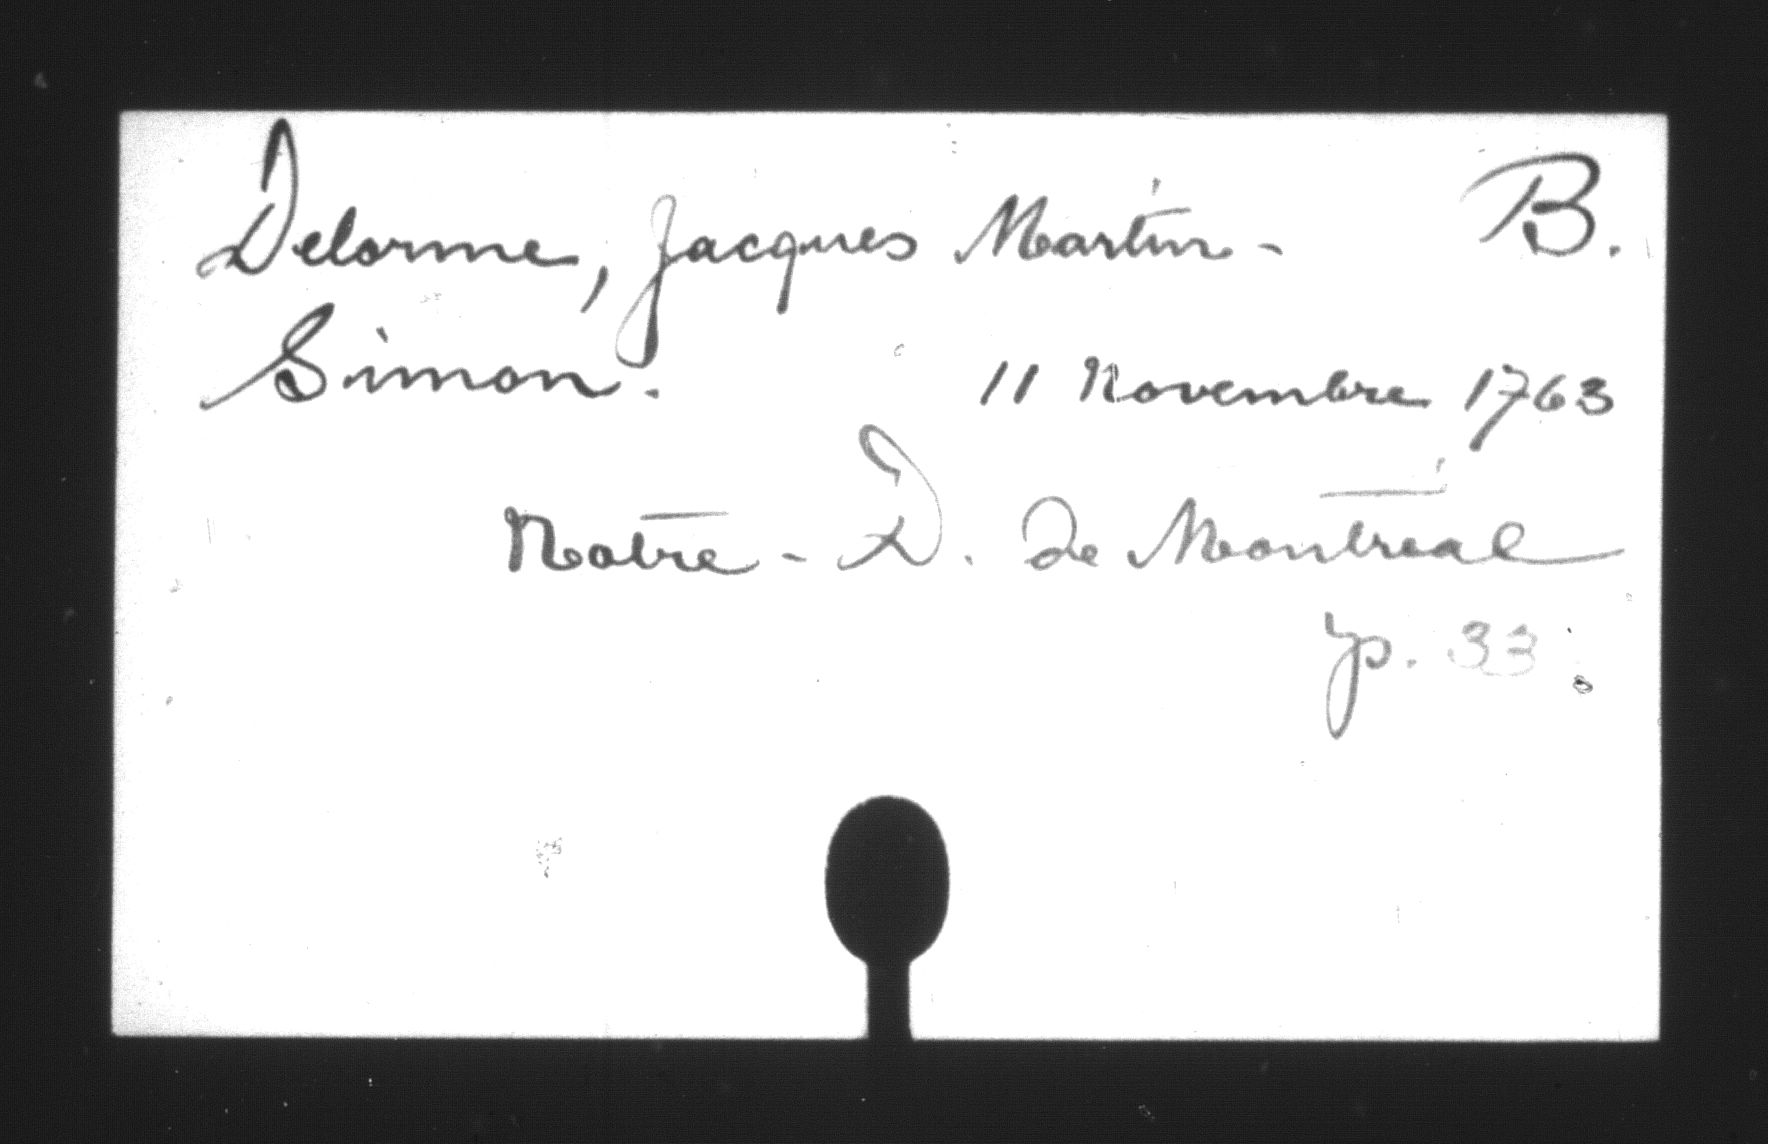 Delorme, Jacques Martin - B.
Simon. 11 Novembre 1763
Notre - D. de Montréal
p. 33